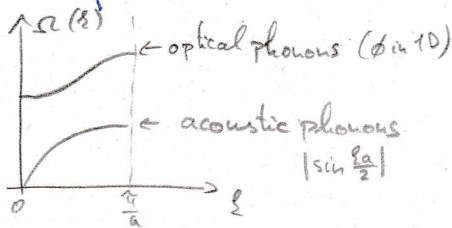 Ω(ξ)
← optical phonons (∅ in 1D)
← acoustic phonons
|sin ξa/2|
0
π/a
ξ